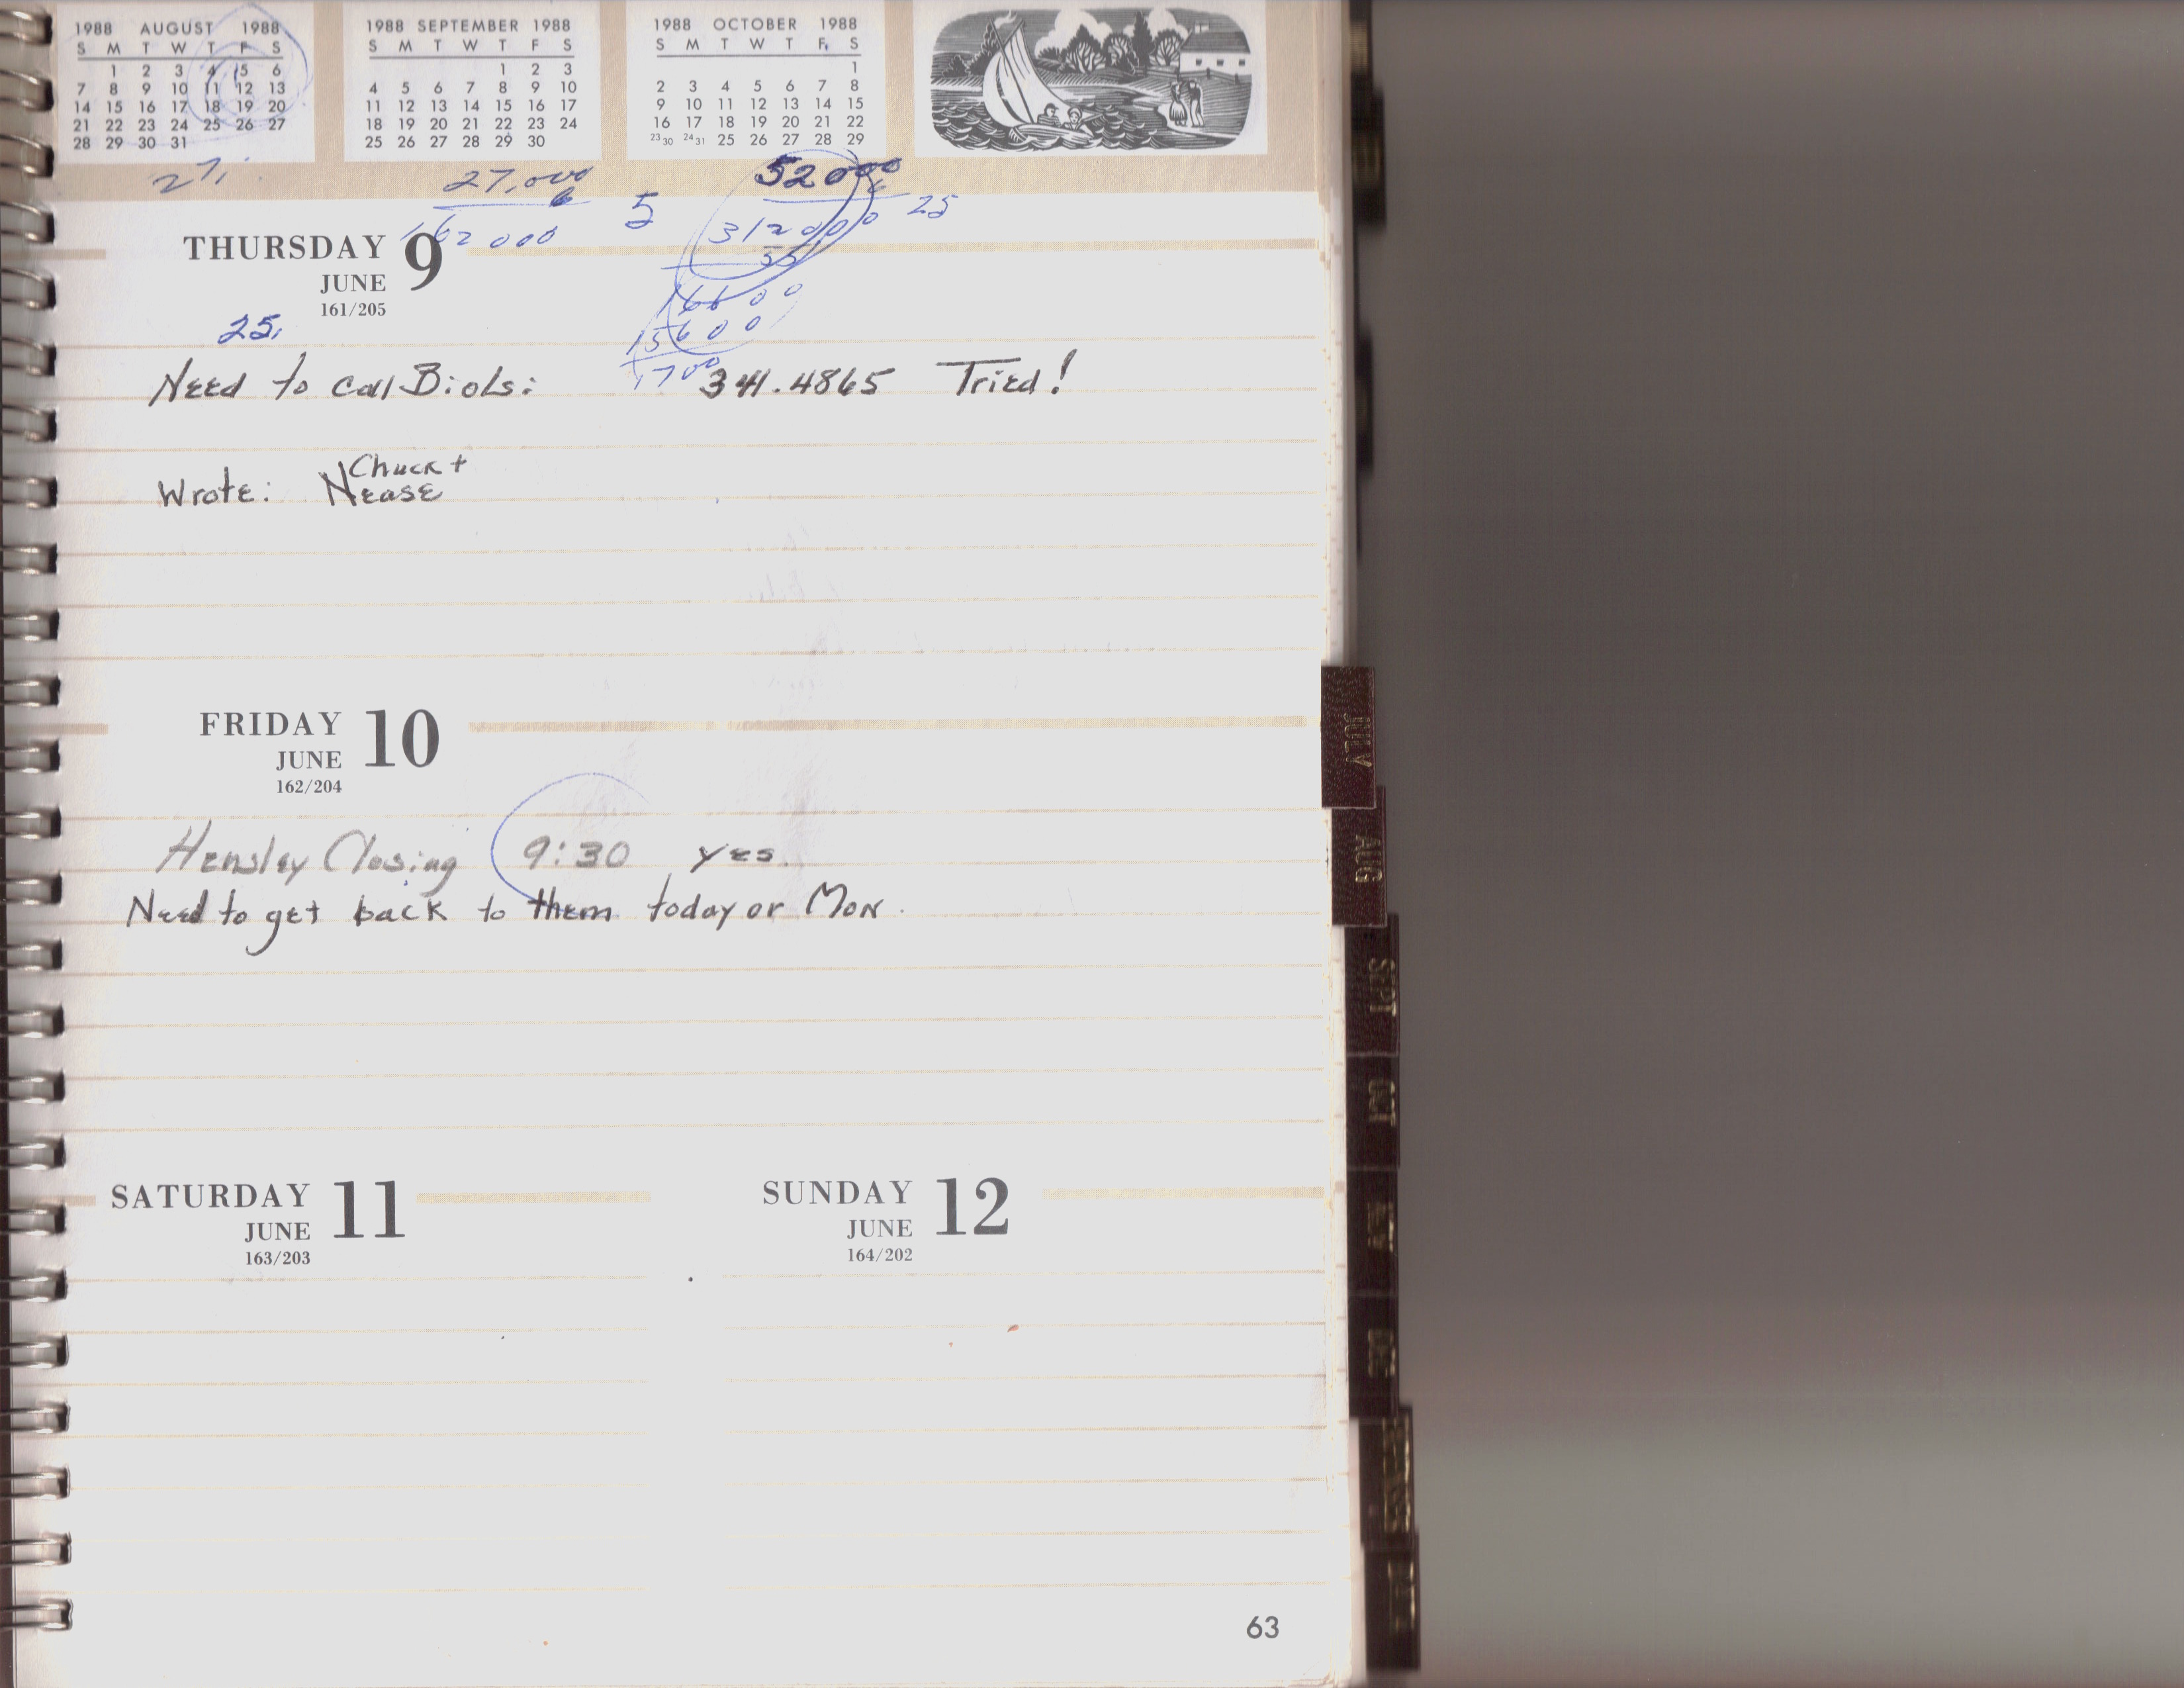 1988 AUGUST 1988
S M T W T F S
1 2 3 4 5 6
7 8 9 10 11 12 13
14 15 16 17 18 19 20
21 22 23 24 25 26 27
28 29 30 31
1988 SEPTEMBER 1988
S M T W T F S
1 2 3
4 5 6 7 8 9 10
11 12 13 14 15 16 17
18 19 20 21 22 23 24
25 26 27 28 29 30
1988 OCTOBER 1988
S M T W T F S
1
2 3 4 5 6 7 8
9 10 11 12 13 14 15
16 17 18 19 20 21 22
23 30 24 31 25 26 27 28 29
27,000
6
162 000
5
52000
6
25
312000
55
15600
1700
THURSDAY 9
JUNE
161/205
25,
Need to call 341.4865 Tried!
Chuck +
Wrote: Nease
FRIDAY 10
JUNE
162/204
Hensley Closing 9:30 yes.
Need to get back to them today or Mon.
SATURDAY 11
JUNE
163/203
SUNDAY 12
JUNE
164/202
63
JULY
AUG
SEPT
OCT